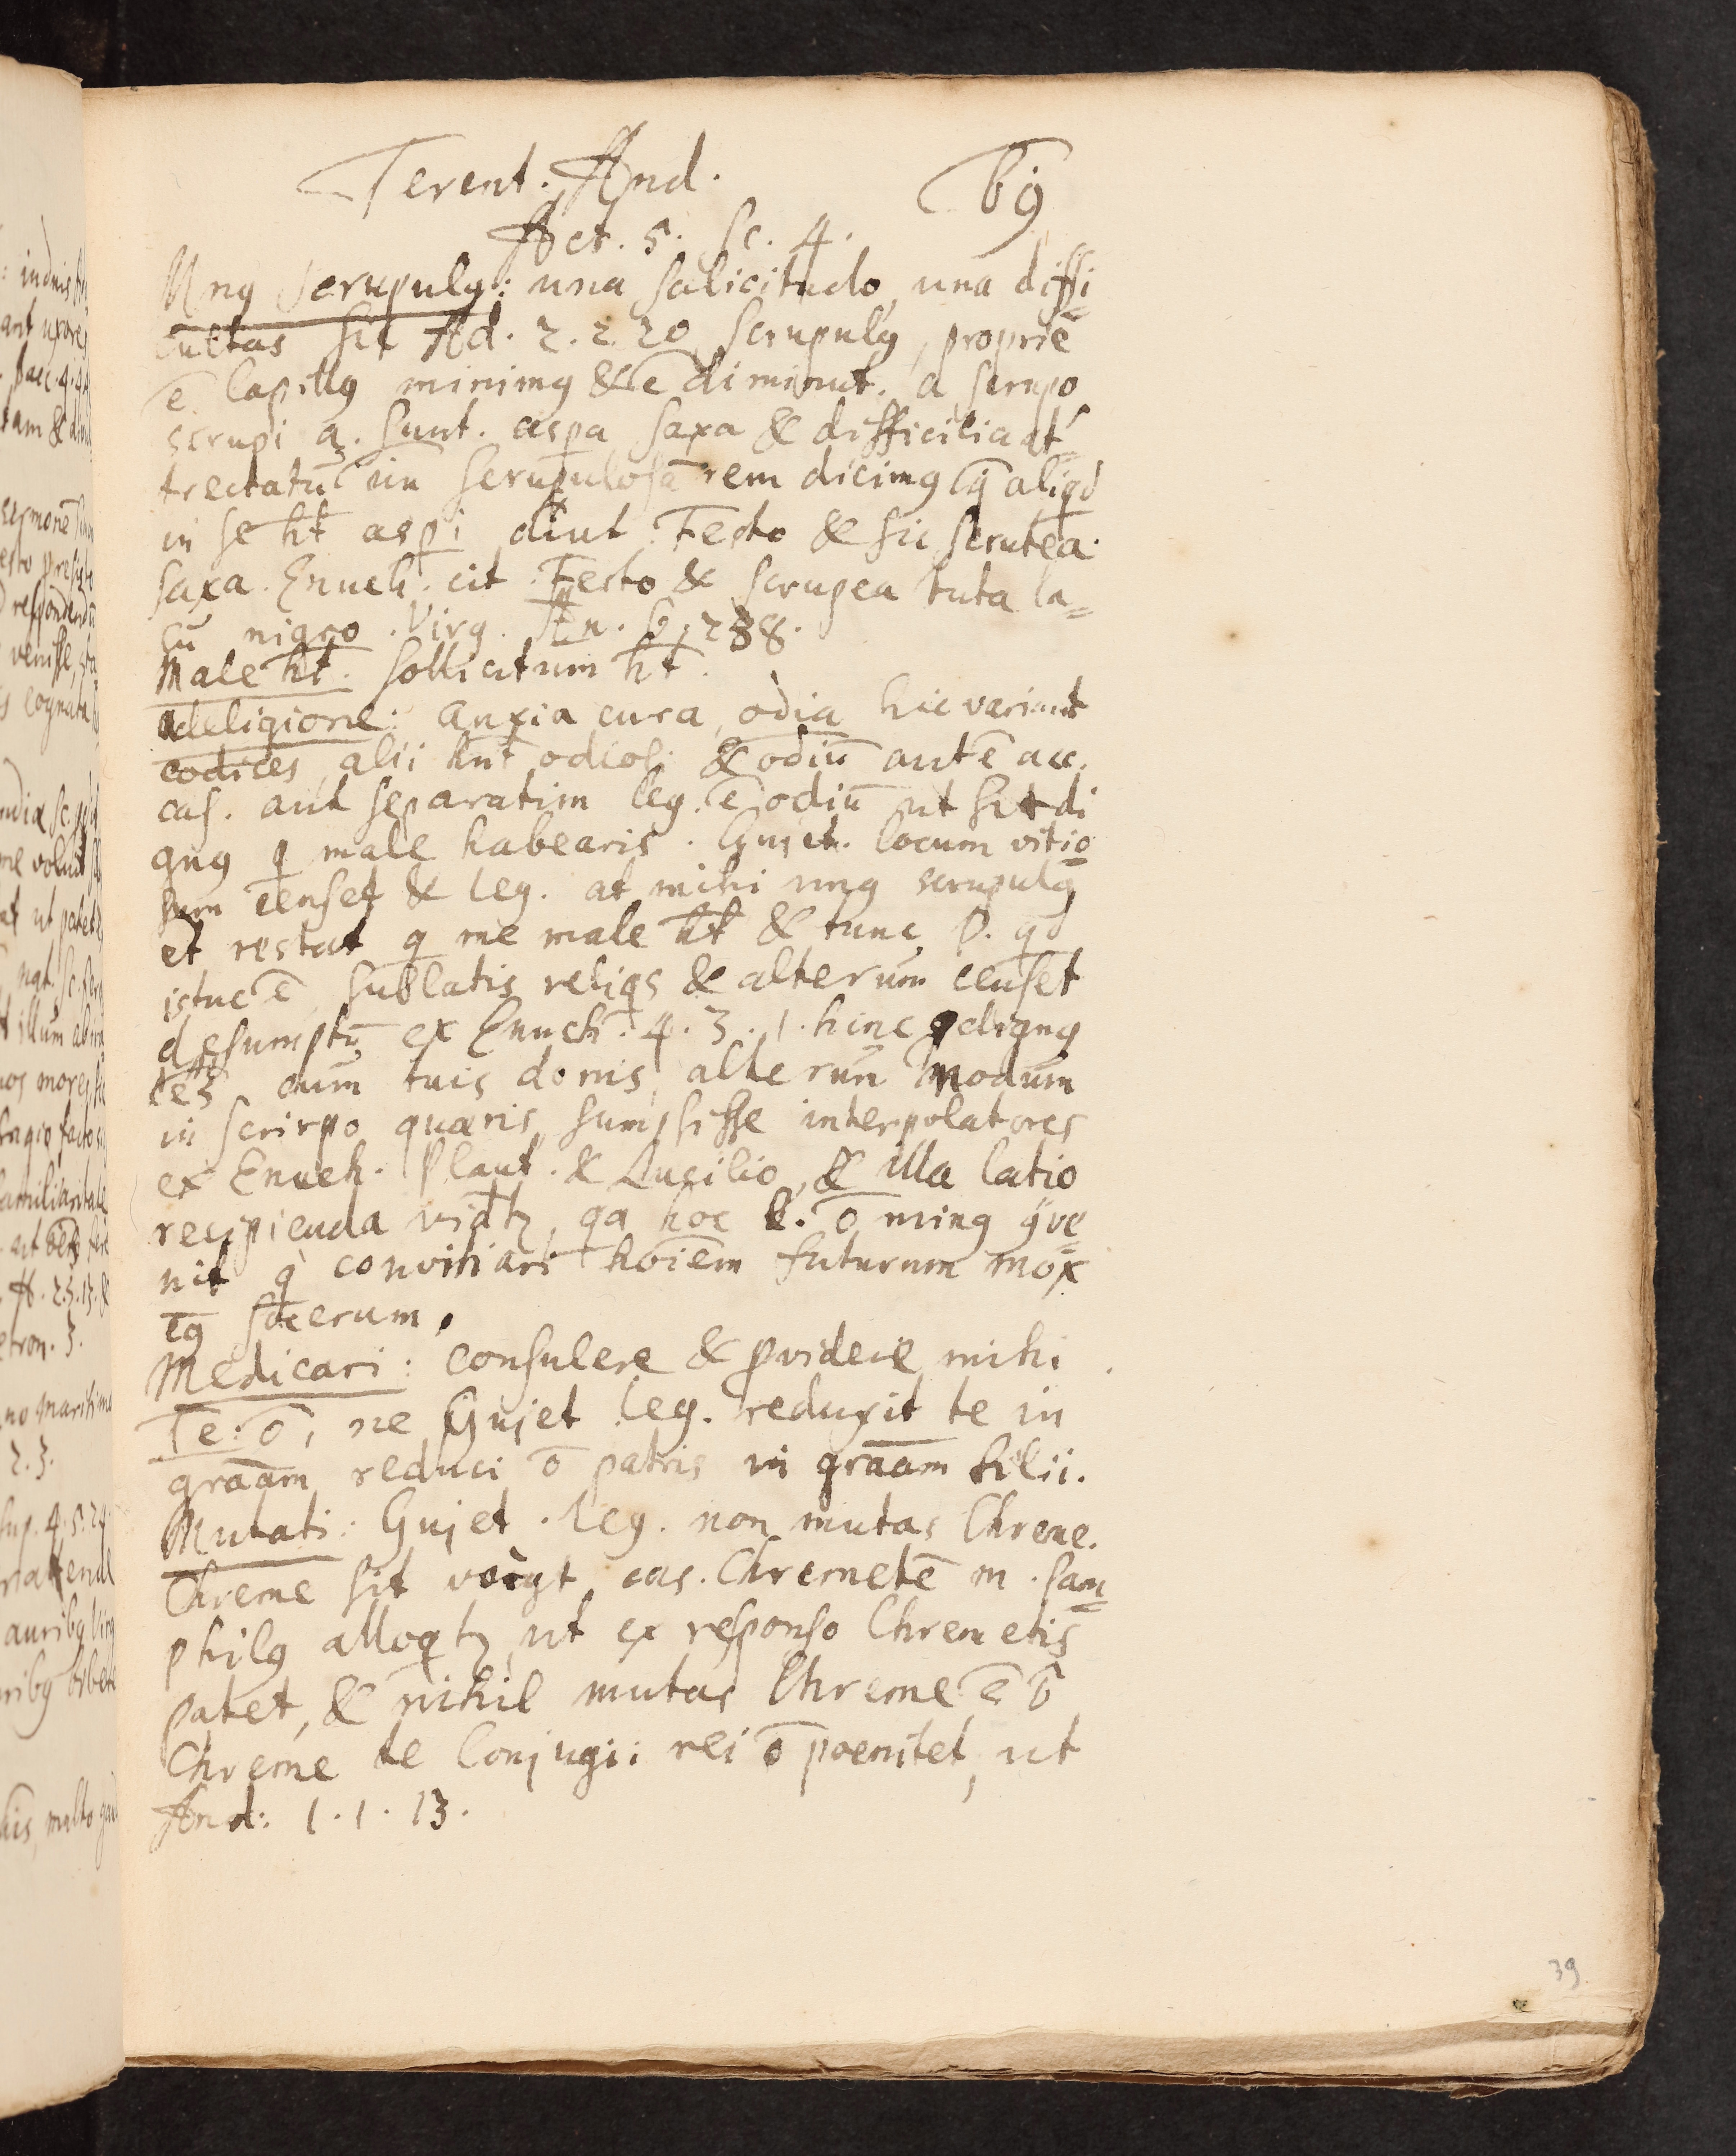 Terent. And. 69
Act. 5. Sc. 4.
Unꝰ scrupulꝰ: una solicitudo, una diffi=
cultas sic Ad. 2. 2. 20 scrupulꝰ, proprie
ē lapillꝰ minimꝰ & ē diminut. a scrupo,
scrupi a. sunt. aspa saxa & difficilia at=
trectatū un scrupulosā rem dicimꝰ q̄ aliqd
in se ht aspi dict. Festo & sic scrutea
saxa. Enueh. cit Festo & scrupea tuta la=
cu nigro. Virg. Æn. 6, 238.
Male ht. sollicitum ht.
Religione: anxia cura, odia hic variant
codices, alii hnt odiosi & odiū antē acc.
cas. aut separatim leg. ē odiū ut sit di
gnꝰ q male habearis. Gujet. locum vitio=
sum censet & leg. at mihi unꝰ scrupulꝰ
et restat q me male ht & tunc P. qd
istuc ē sublatis reliqs & alterum censet
desumptū ex Enuch. 4. 3. 1. hinc dignꝰ
cum tuis donis, alterun modum
in scirpo quæris, sumpsisse interpolatores
ex Enueh. Plaut. & Lucilio, & illa latio
recipienda vidtꝫ, qa hoc l. ō minꝰ gve=
nit q convitiari hoiēm futurum mox
socerum.
Medicari: consulere & pvidere mihi
Te. ō, ne Gujet leg. reduxit te in
graam reduci ō patris in graam filii.
Mutati: Gujet. leg. non mutas Chreme.
Chreme sit vocat, cas. Chremetē m. Pam=
philꝰ alloqtꝫ ut ex responso Chremetis
patet, & nihil mutas Chreme ē ō
Chreme te Conjugii rei ō poenitet, ut
And: 1. 1. 13.
39